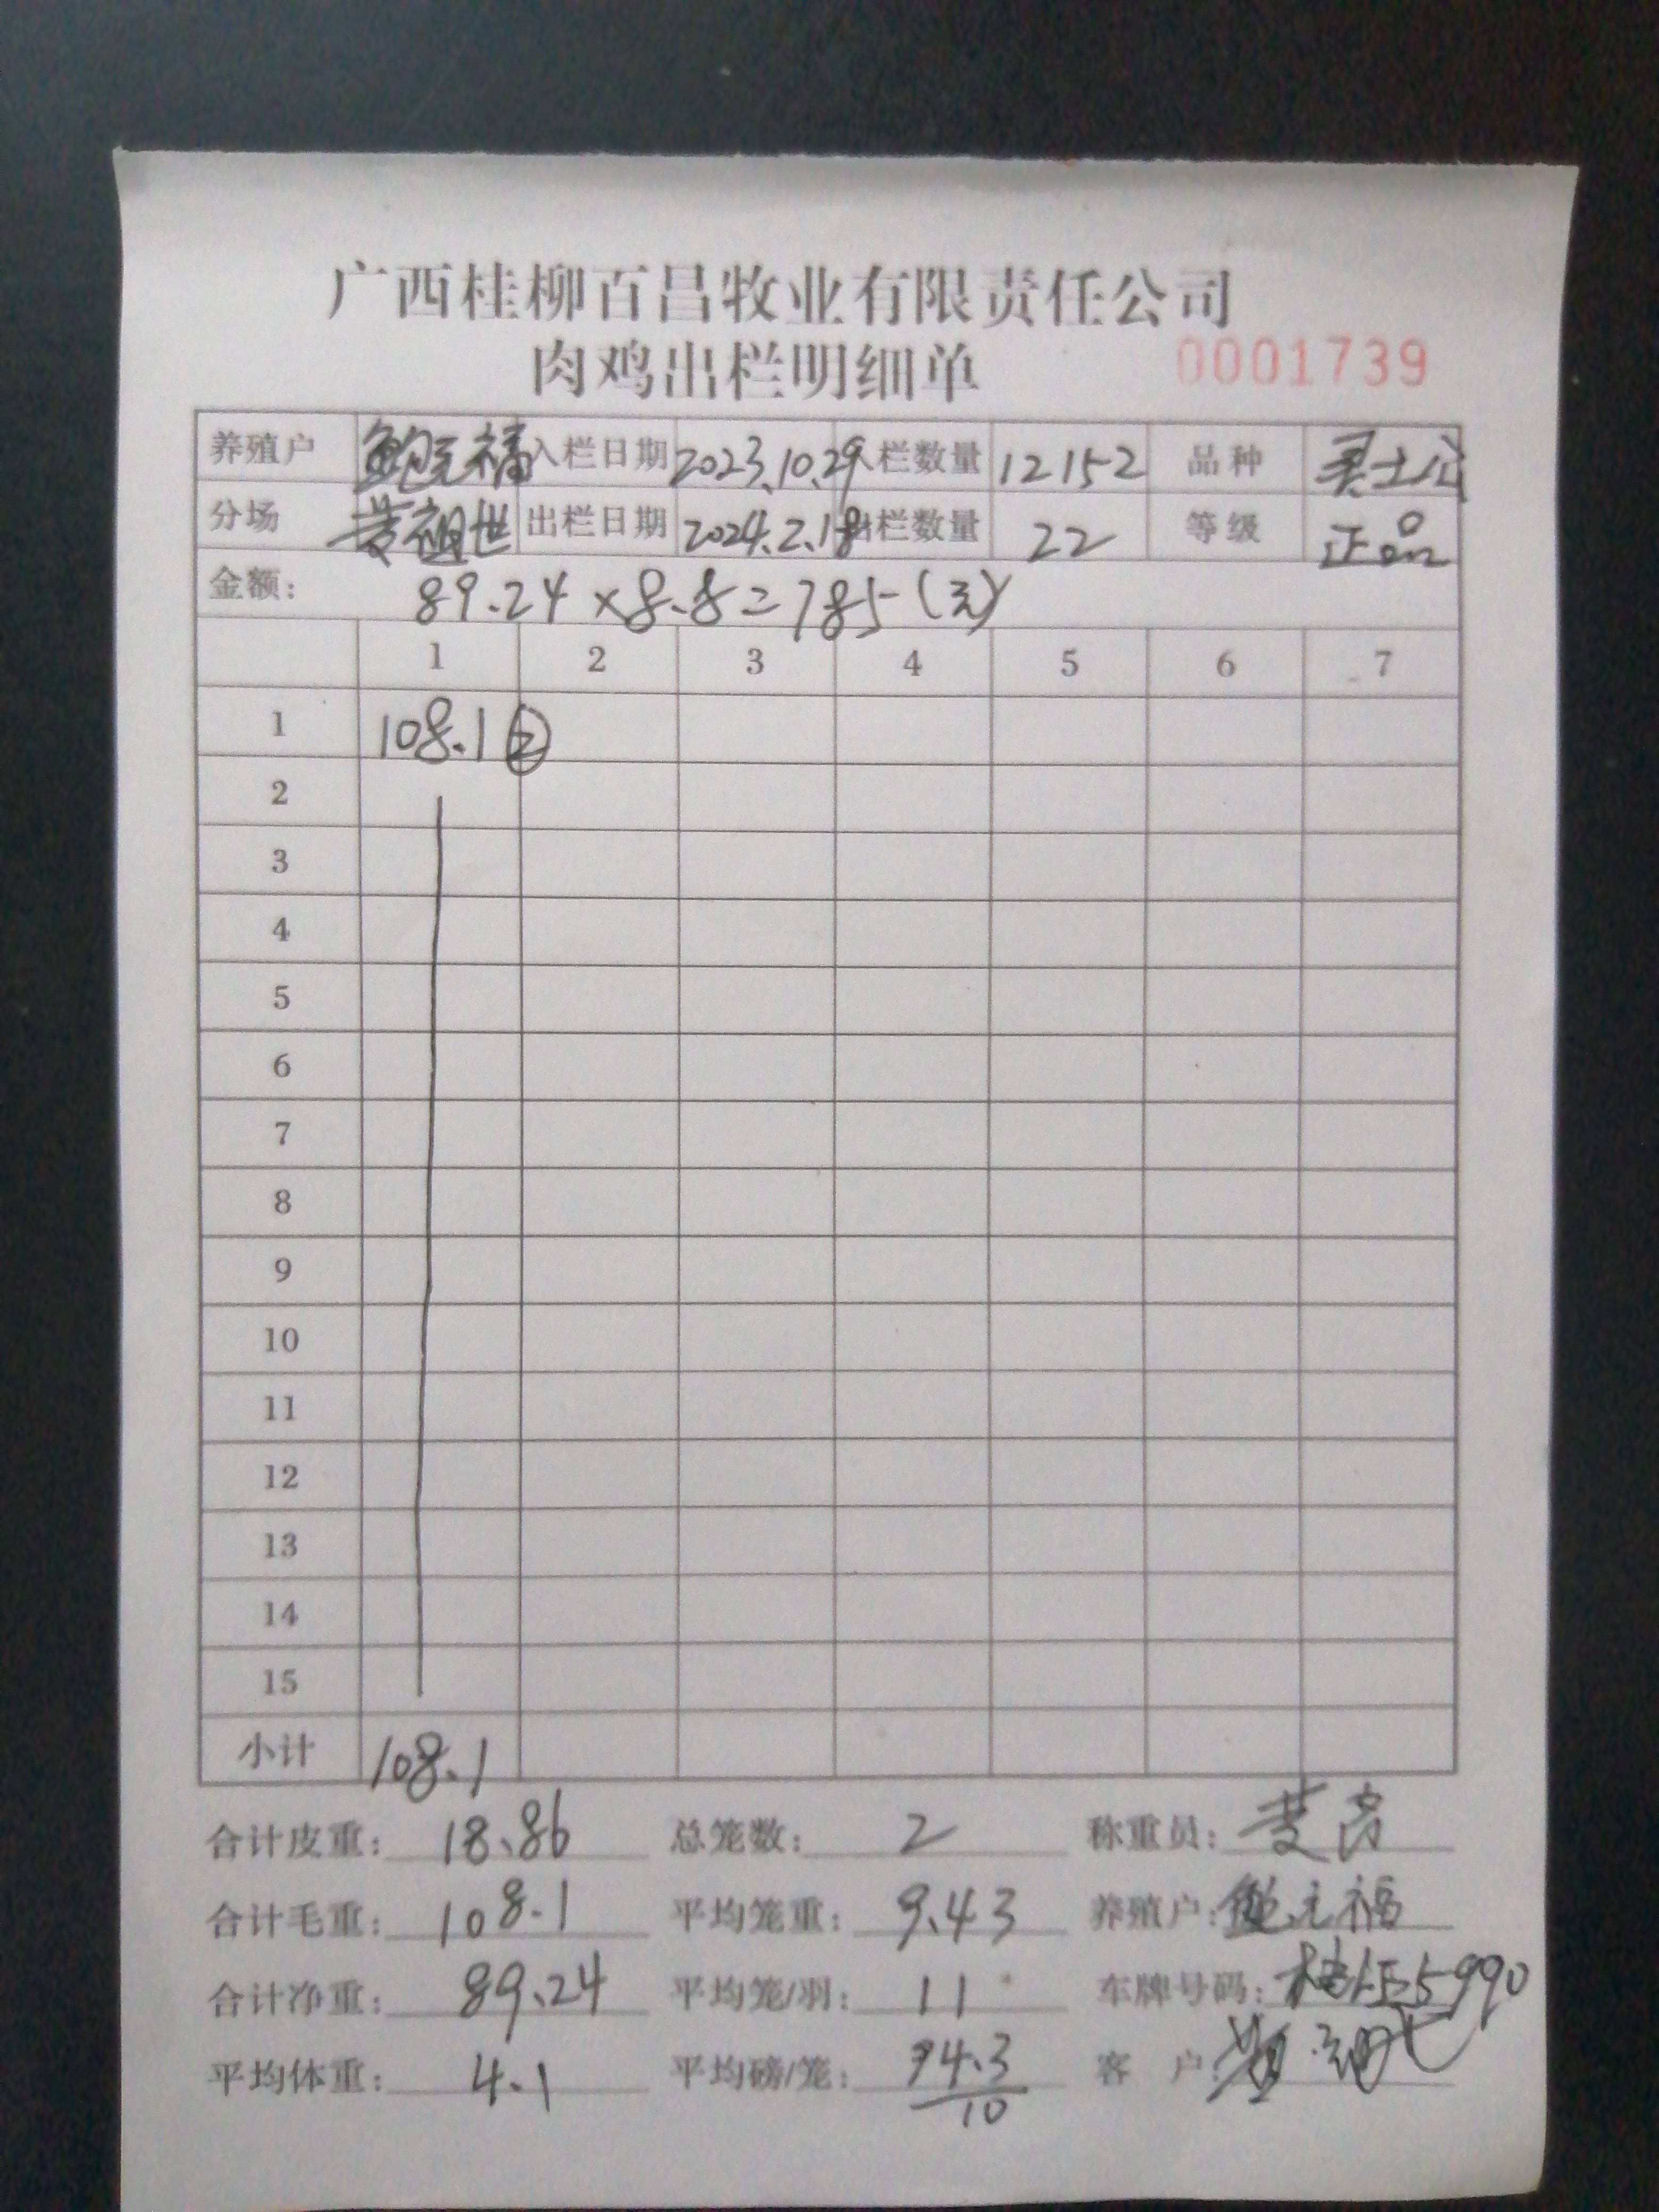 广西桂柳百昌牧业有限责任公司
肉鸡出栏明细单 0001739
养殖户 鲍元福 入栏日期 2023.10.29 栏数量 12152 品种
分场 黄祖世 出栏日期 2024.2.18 栏数量 22 等级 正品
金额: 89.24×8.8=785(元)
1 2 3 4 5 6 7
1 108.1 ②
2
3
4
5
6
7
8
9
10
11
12
13
14
15
小计 108.1
合计皮重: 18.86 总笼数: 2 称重员:
合计毛重: 108.1 平均笼重: 9.43 养殖户: 鲍元福
合计净重: 89.24 平均笼/羽: 11 车牌号码:
平均体重: 4.1 平均磅/笼: 94.3
10 客户: